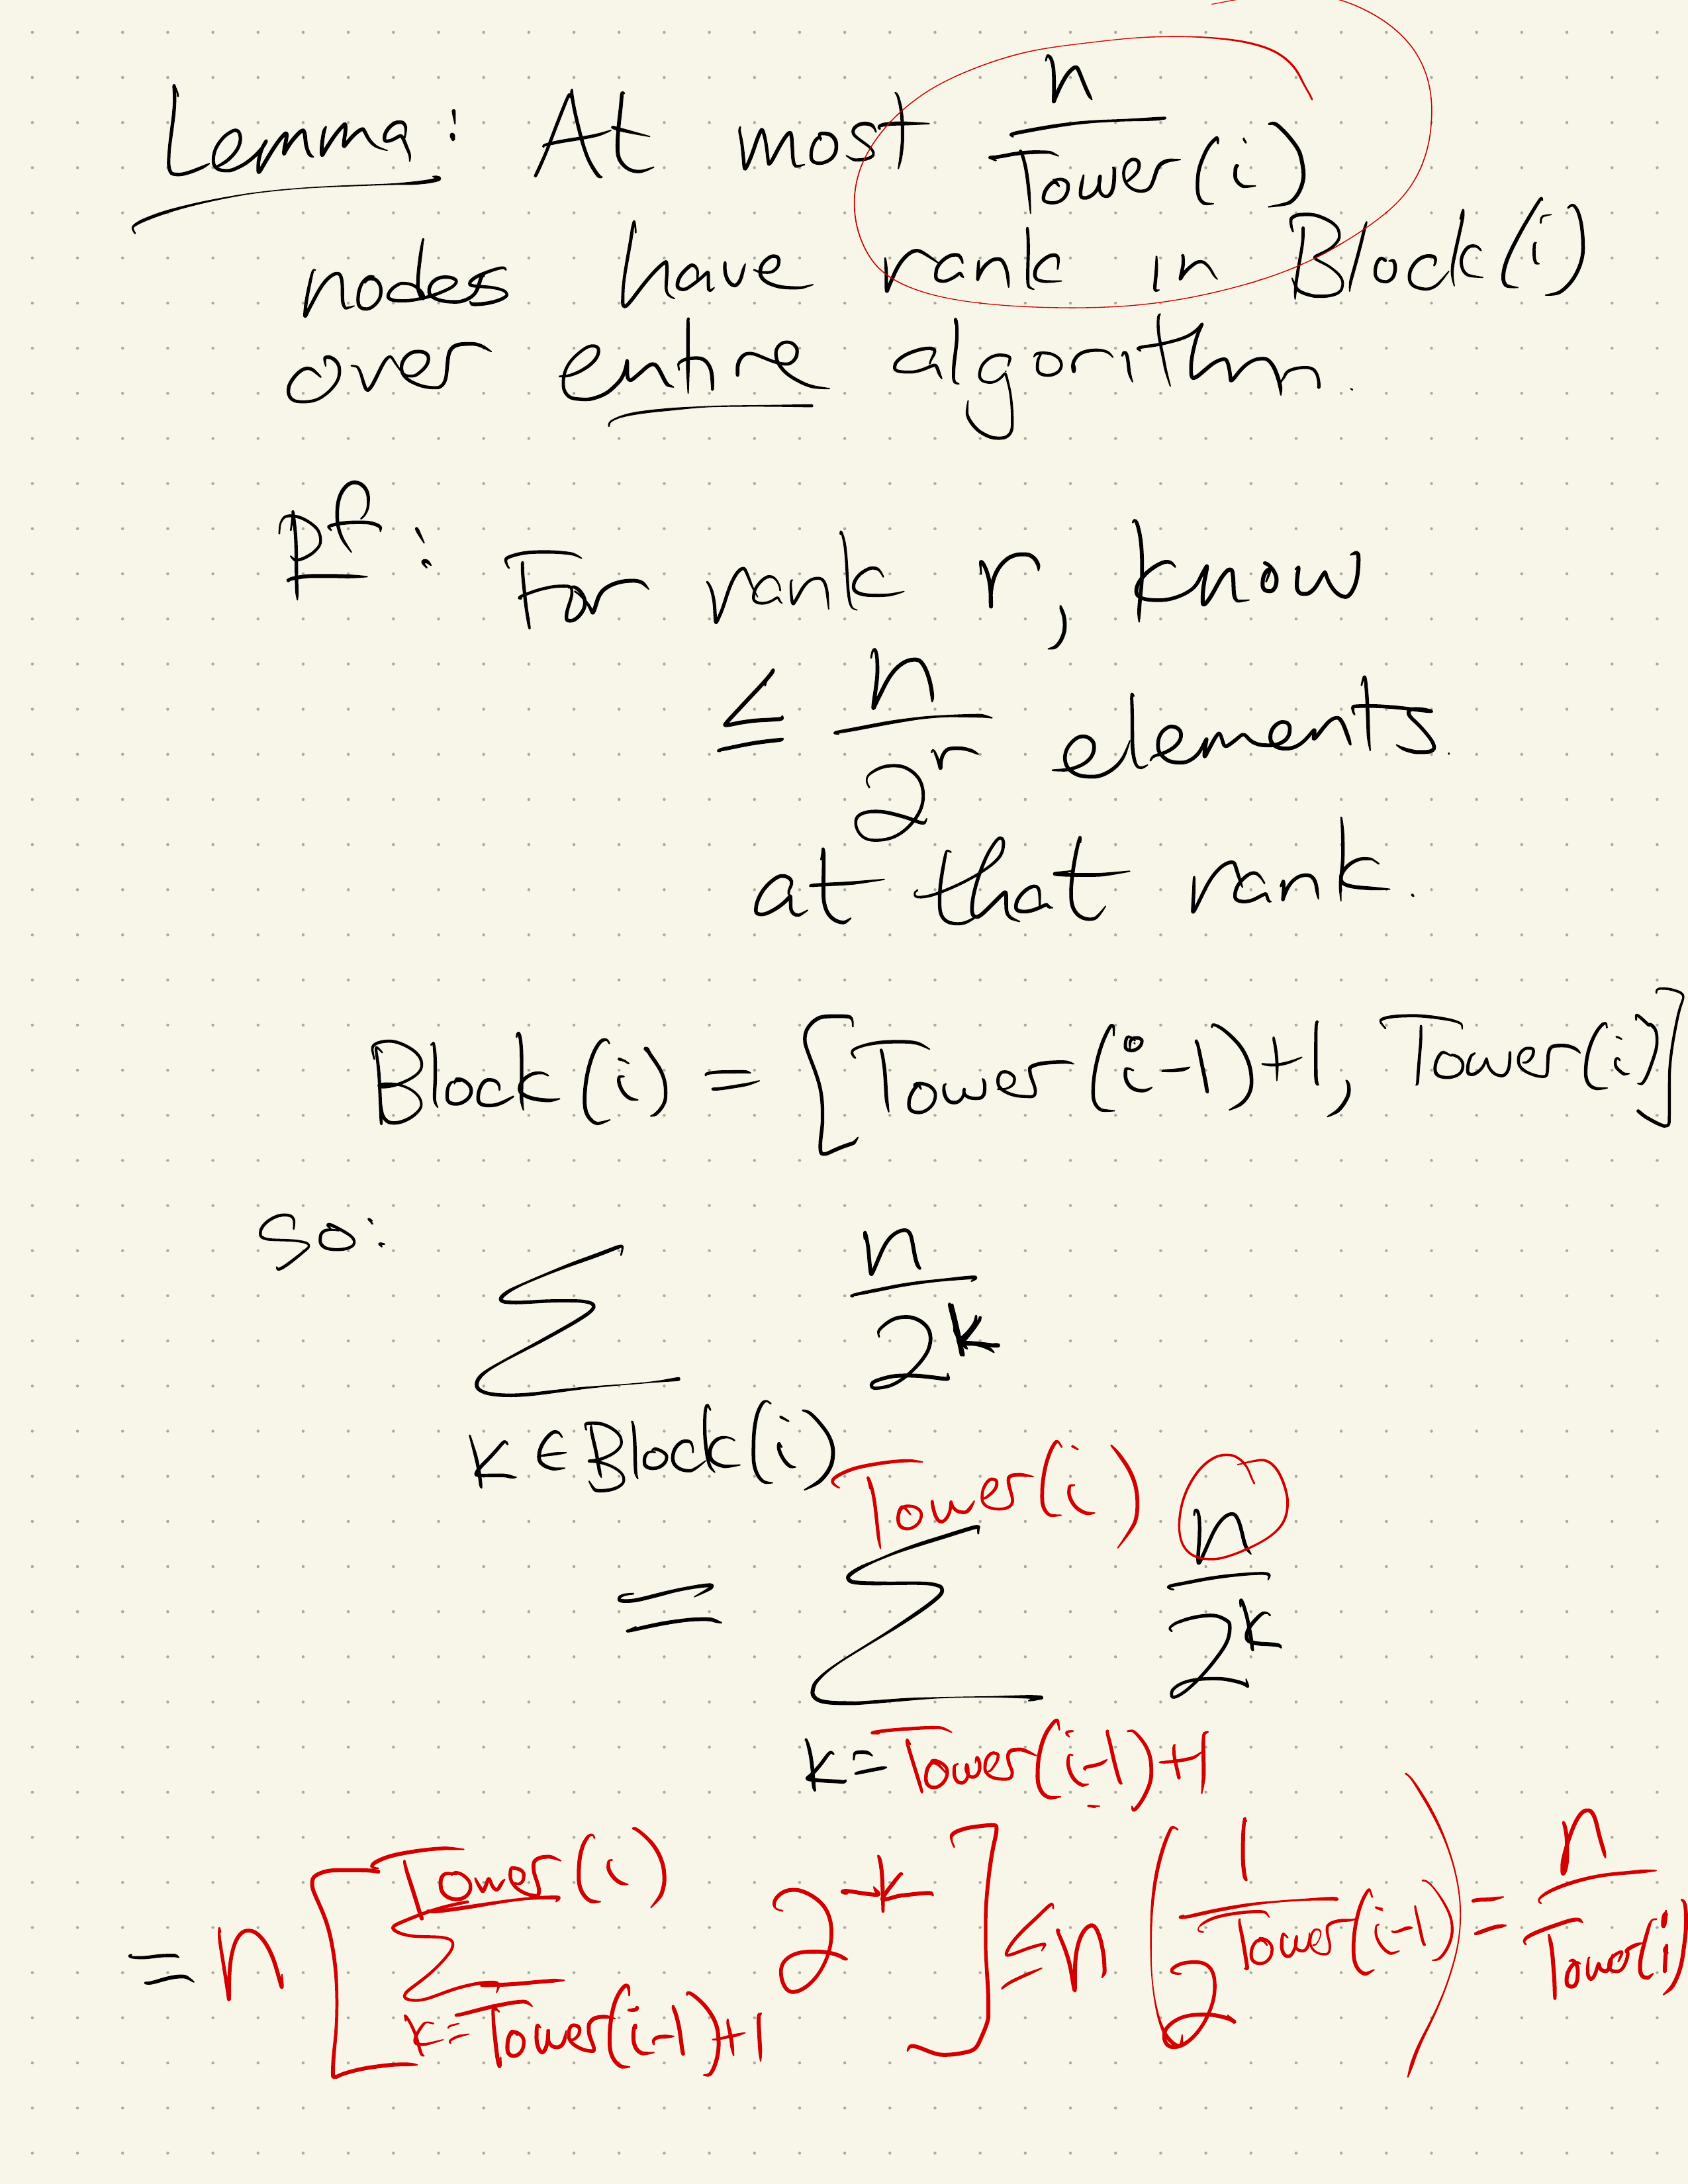 Lemma: At most n/Tower(i)
nodes have rank in Block(i)
over entire algorithm.
Pf: For rank r, know
≤ n/2^r elements
at that rank.
Block(i) = [Tower(i-1)+1, Tower(i)]
so:
∑_{k ∈ Block(i)} n/2^k
= ∑_{k=Tower(i-1)+1}^{Tower(i)} n/2^k
= n [∑_{k=Tower(i-1)+1}^{Tower(i)} 2^{-k}] ≤ n (1/2^{Tower(i-1)}) = n/Tower(i)